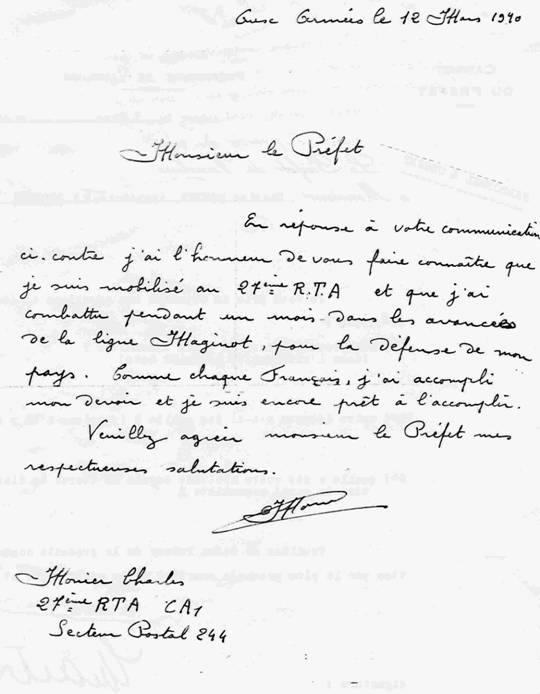 Aux Armées le 12 Mars 1940
Monsieur le Préfet
En réponse à votre communication
ci-contre j'ai l'honneur de vous faire connaître que
je suis mobilisé au 27ème R.T.A et que j'ai
combattu pendant un mois dans les avancées
de la ligne Maginot, pour la défense de mon
pays. Comme chaque Français, j'ai accompli
mon devoir et je suis encore prêt à l'accomplir.
Veuillez agréer monsieur le Préfet mes
respectueuses salutations.
Monier Charles
27ème RTA CA1
Secteur Postal 244